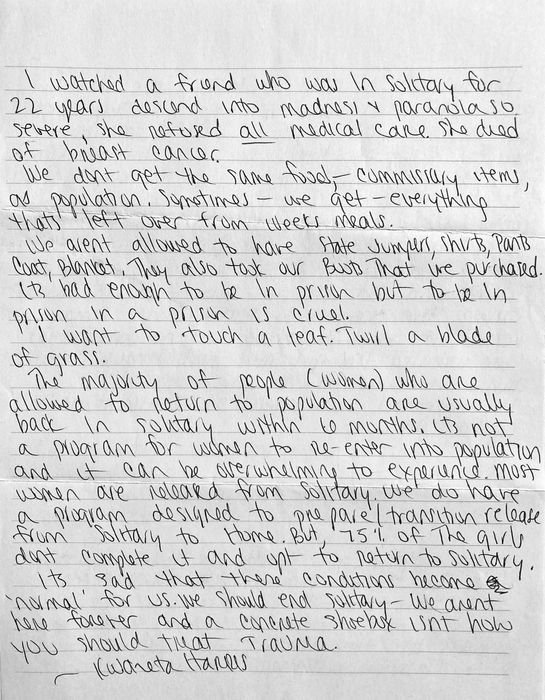 I watched a friend who was in solitary for
22 years descend into madness & paranoia so
severe, she refused all medical care. She died
of breast cancer.
We dont get the same food, - commissary items,
as population. Sometimes - we get - everything
thats left over from weeks meals.
We arent allowed to have state jumpers, shirts, pants
coat, Blanket. They also took our Boots that we purchased.
Its bad enough to be in prison but to be in
prison in a prison is cruel.
I want to touch a leaf. Twirl a blade
of grass.
The majority of people (women) who are
allowed to return to population are usually
back in solitary within 6 months. Its not
a program for women to re-enter into population
and it can be overwhelming to experience. Most
women are released from solitary. We do have
a program designed to prepare/transition release
from solitary to home. But, 75% of the girls
dont complete it and opt to return to solitary.
Its sad that these conditions become
'normal' for us. We should end solitary - We arent
here forever and a concrete shoebox isnt how
you should treat Trauma.
- Kwaneta Harris